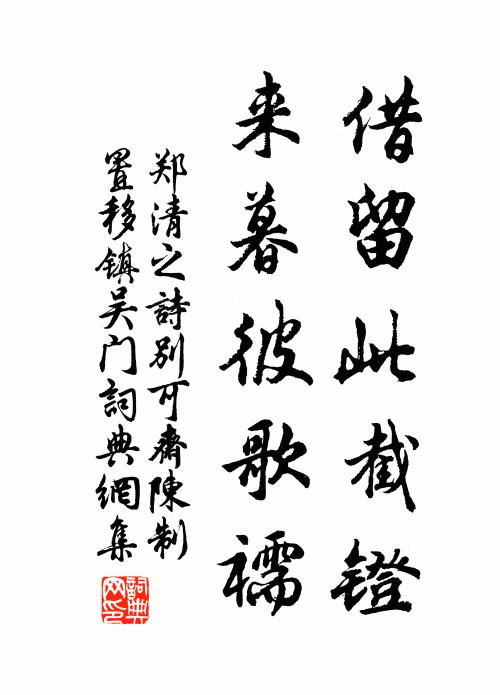 借留此截镫
来暮彼歌襦
郑清之詩别可齋陳制
置移鎮吴门詞典網集
詞典